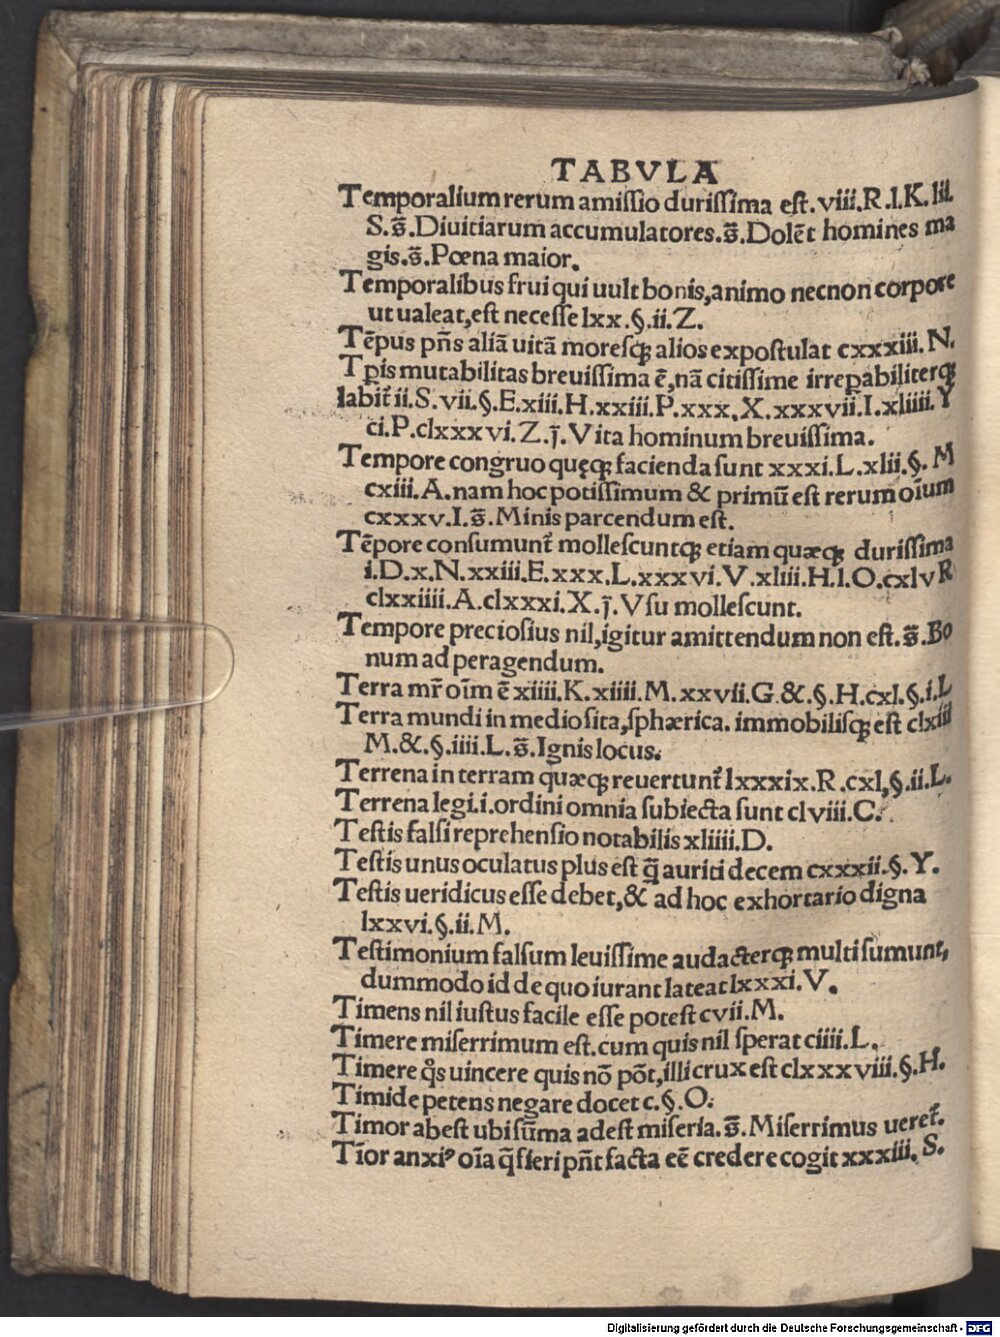 TABVLA
Temporalium rerum amissio durissima est. viii.R.l.K.lii.
S.s̄.Diuitiarum accumulatores.s̄.Dolēt homines ma
gis.s̄.Pœna maior.
Temporalibus frui qui uult bonis,animo necnon corpore
ut ualeat,est necesse lxx.§.ii.Z.
Tēpus pn̄s aliā uitā moresqꝫ alios expostulat cxxxiii.N.
Tꝑis mutabilitas breuissima ē,nā citissime irreꝑabiliterqꝫ
labit̄ ii.S.vii.§.E.xiii.H.xxiii.P.xxx.X.xxxvii.I.xliiii.Y
ci.P.clxxxvi.Z.j̄.Vita hominum breuissima.
Tempore congruo quęqꝫ facienda sunt xxxi.L.xlii.§.M
cxiii.A.nam hoc potissimum & primū est rerum oīum
cxxxv.I.s̄.Minis parcendum est.
Tēpore consumunt̄ mollescuntqꝫ etiam quæqꝫ durissima
i.D.x.N.xxiii.E.xxx.L.xxxvi.V.xliii.H.l.O.cxlv R
clxxiiii.A.clxxxi.X.j̄.Vsu mollescunt.
Tempore preciosius nil,igitur amittendum non est.s̄.Bo
num ad peragendum.
Terra mr̄ oīm ē xiiii.K.xiiii.M.xxvii.G.&.§.H.cxl.§.i.L
Terra mundi in medio sita,sphærica.immobilisqꝫ est clxiii
M.&.§.iiii.L.s̄.Ignis locus.
Terrena in terram quæqꝫ reuertunt̄ lxxxix.R.cxl,§.ii.L.
Terrena legi.i.ordini omnia subiecta sunt clviii.C.
Testis falsi reprehensio notabilis xliiii.D.
Testis unus oculatus plus est q̄ auriti decem cxxxii.§.Y.
Testis ueridicus esse debet,& ad hoc exhortatio digna
lxxvi.§.ii.M.
Testimonium falsum leuissime audacterqꝫ multi sumunt,
dummodo id de quo iurant lateat lxxxi.V.
Timens nil iustus facile esse potest cvii.M.
Timere miserrimum est.cum quis nil sperat ciiii.L.
Timere q̊s uincere quis nō pōt,illi crux est clxxxviii.§.H.
Timide petens negare docet c.§.O.
Timor abest ubi sūma adest miseria.s̄.Miserrimus ueret̄.
Tīor anxiꝰ oīa q̄ fieri pn̄t facta eē credere cogit xxxiii.S.
Digitalisierung gefördert durch die Deutsche Forschungsgemeinschaft - DFG